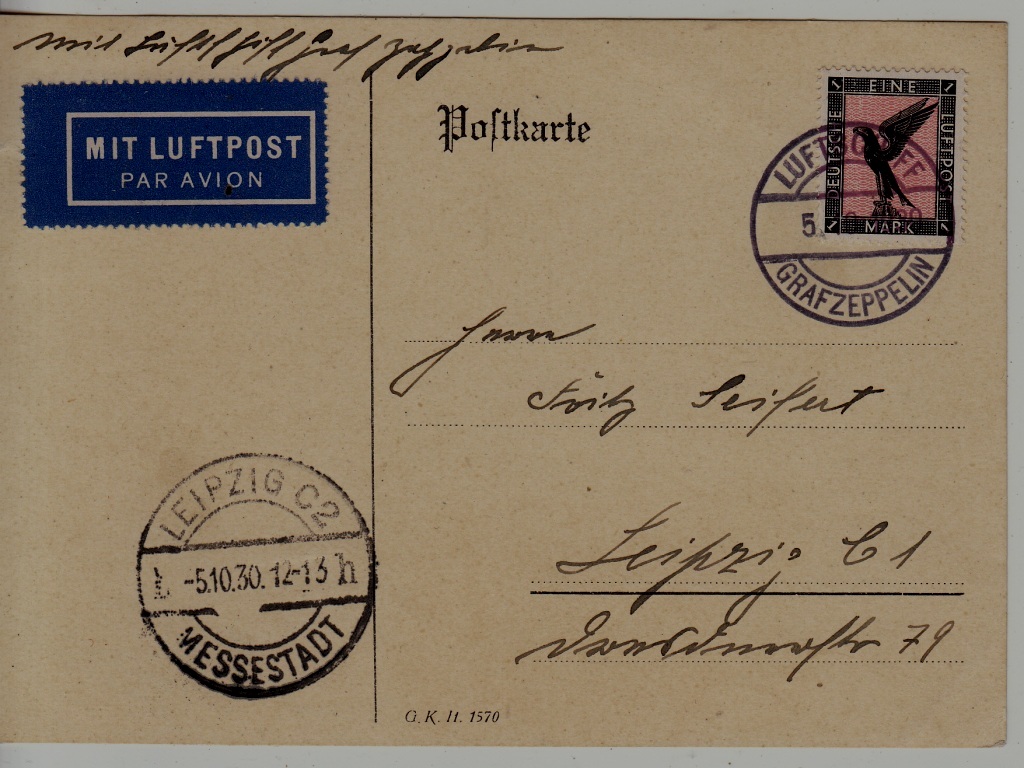 mit Luftschiff Graf Zeppelin
MIT LUFTPOST
PAR AVION
Postkarte
EINE
DEUTSCHE
LUFTPOST
1 MARK 1
LUFTSCHIFF
5.
GRAF ZEPPELIN
Herrn
Fritz Seifert
Leipzig C 1
Dresdnerstr 79
LEIPZIG C2
-5.10.30. 12-13 h
MESSESTADT
G. K. II. 1570